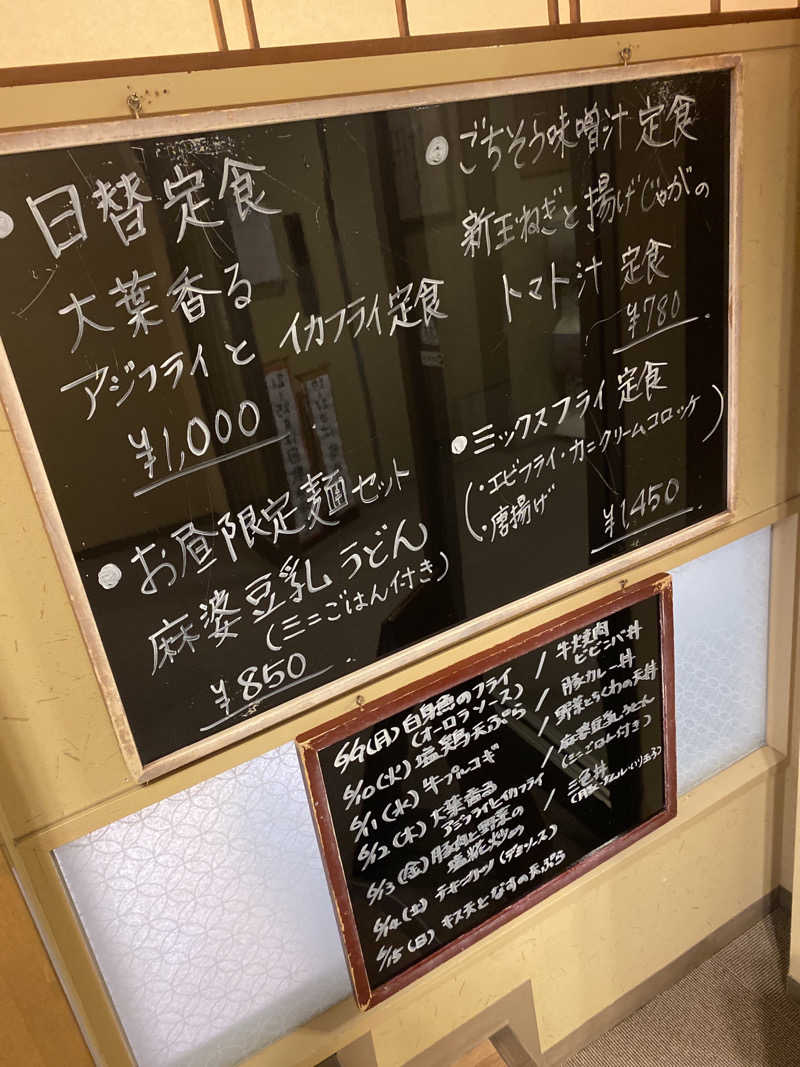 日替定食
大葉香る
アジフライと イカフライ定食
¥1,000
お昼限定麺セット
麻婆豆乳うどん
(ミニごはん付き)
¥850
ごちそう味噌汁定食
新玉ねぎと揚げじゃがの
トマト汁 定食
¥780
ミックスフライ定食
(・エビフライ・カニクリームコロッケ
・唐揚げ)
¥1450
6/9(月) 白身魚のフライ / 牛焼肉
(オーロラソース) ビビンバ丼
6/10(火) 塩鶏天ぷら / 豚カレー丼
6/11(水) 牛プルコギ / 野菜とちくわの天丼
6/12(木) 大葉香る / 麻婆豆乳うどん
アジフライとイカフライ (ミニごはん付き)
6/13(金) 豚肉と野菜の / 三色丼
塩糀炒め
6/14(土) チキンカツ (デミソース)
6/15(日) キス天となすの天ぷら